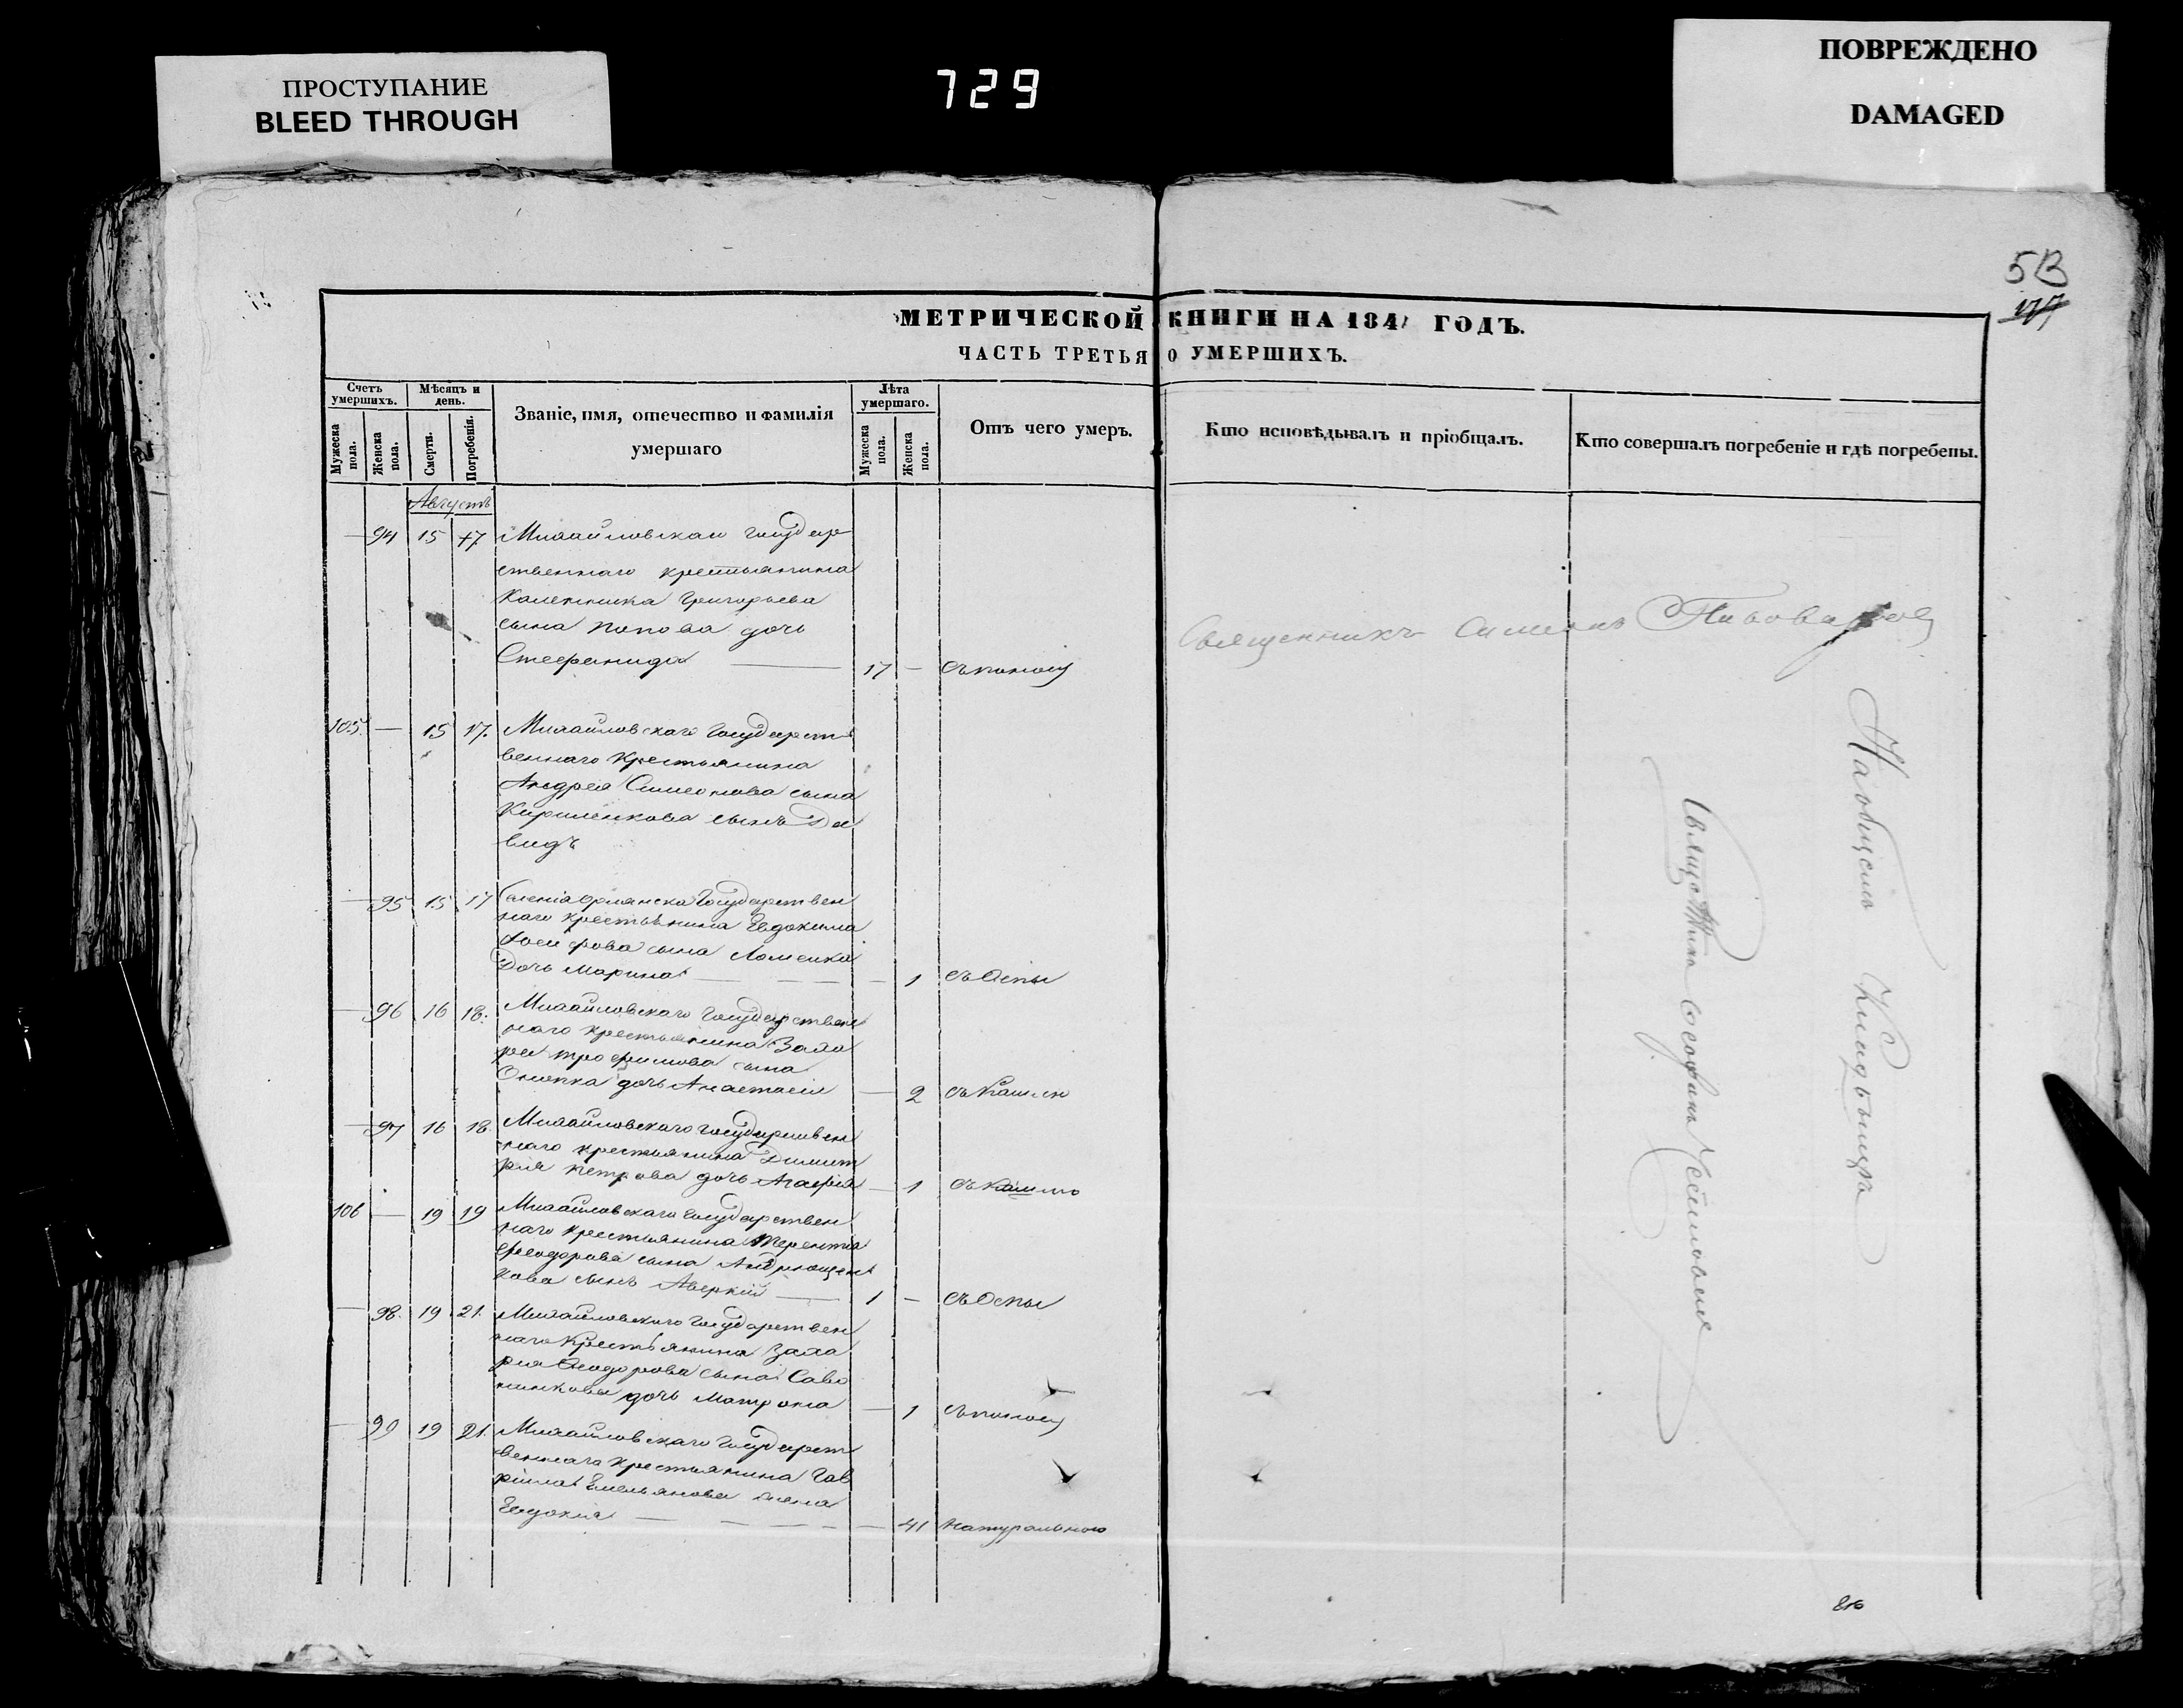 ПРОСТУПАНИЕ
BLEED THROUGH
729
ПОВРЕЖДЕНО
DAMAGED
513
177
МЕТРИЧЕСКОЙ КНИГИ НА 1841 ГОДЪ.
ЧАСТЬ ТРЕТЬЯ О УМЕРШИХЪ.
Счетъ умершихъ.
Мужеска пола.
Женска пола.
Мѣсяцъ и день.
Смерти.
Погребенія.
Званіе, имя, отечество и фамилія
умершаго
Лѣта умершаго.
Мужеска пола.
Женска пола.
Отъ чего умеръ.
Кто исповѣдывалъ и пріобщалъ.
Кто совершалъ погребеніе и гдѣ погребены.
Августъ
— 94 15 17 Михайловскаго государ
ственнаго крестьянина
Каленника Григорьева
сына Попова дочь
Стефанида — 17 — съ поносу
Священникъ Симеонъ Пивоваровъ
105. — 15 17. Михайловскаго государст
веннаго крестьянина
Андрея Симеонова сына
Кириленкова сынъ Да
видъ
— 95 15 17 Государствен
наго крестьянина Евдокима
сына Ломенка
дочь Марина — — — 1 съ Оспы
— 96 16 18. Михайловскаго государствен
наго крестьянина Заха
рія Трофимова сына
дочь Анастасія — 2 съ Кашлю
— 97 16 18. Михайловскаго государствен
наго крестьянина Димит
рія Петрова дочь Агафія — 1 съ Кашлю
106 — 19 19 Михайловскаго государствен
наго крестьянина Терентія
Феодорова сына Андрющен
кова сынъ Аверкій — 1 — съ Оспы
— 98. 19 21. Михайловскаго государствен
наго крестьянина Заха
рія Феодорова сына Саво
ненкова дочь Матрона — 1 съ поносу
— 99 19 21. Михайловскаго государст
веннаго крестьянина Гав
ріила Емельянова жена
Евдокія — — — — 41 Натурально
На общемъ Кладбищѣ
Священникъ